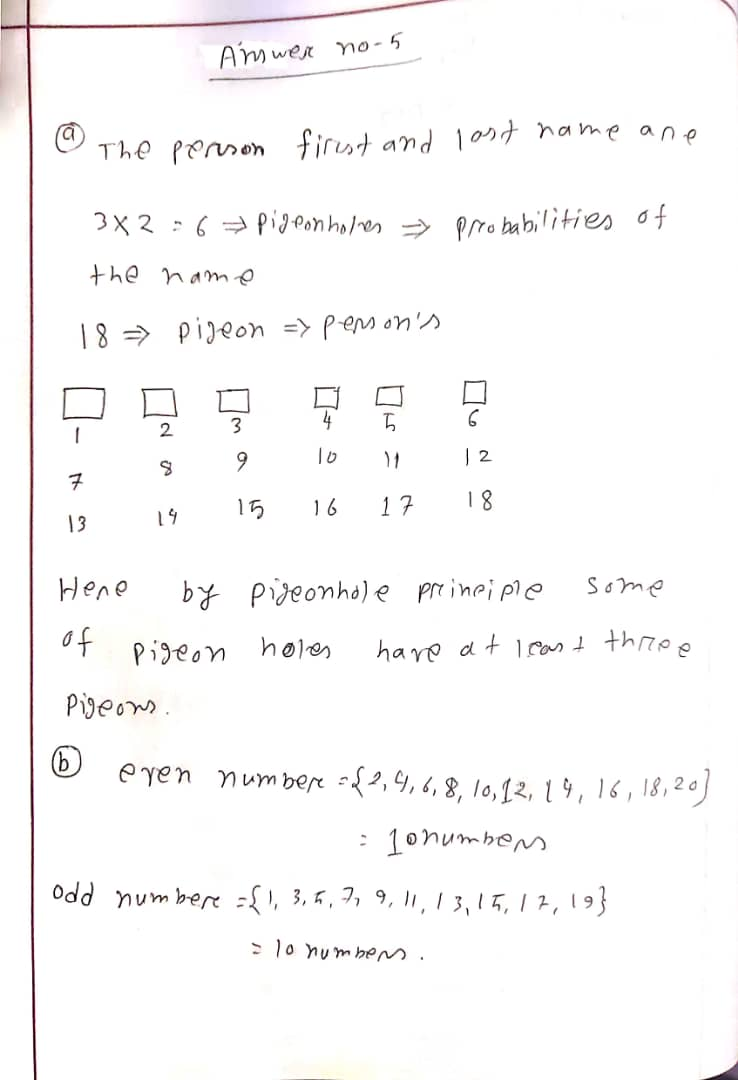 Answer no-5
ⓐ The person first and last name are
3×2 = 6 ⇒ Pigeonholes ⇒ probabilities of
the name
18 ⇒ pigeon ⇒ person's
1 2 3 4 5 6
7 8 9 10 11 12
13 14 15 16 17 18
Here by pigeonhole principle some
of pigeon holes have at least three
pigeons.
ⓑ even number = {2, 4, 6, 8, 10, 12, 14, 16, 18, 20}
= 10 numbers
odd number = {1, 3, 5, 7, 9, 11, 13, 15, 17, 19}
= 10 numbers.